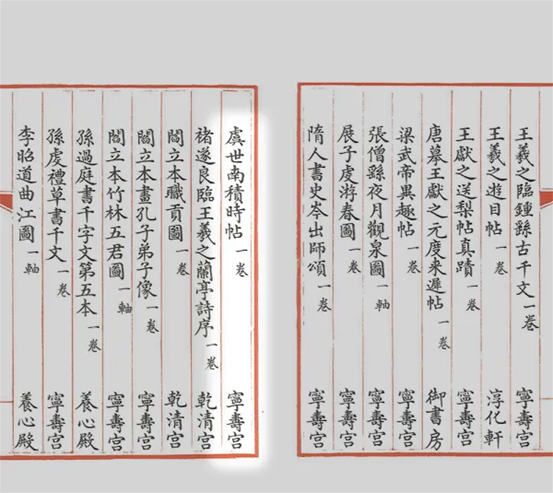 王羲之臨鍾繇古千文 一卷 寧壽宮
王羲之遊目帖 一卷 淳化軒
王獻之送梨帖真蹟 一卷 寧壽宮
唐摹王獻之元度来遲帖 一卷 御書房
梁武帝異趣帖 一卷 寧壽宮
張僧繇夜月觀泉圖 一軸 寧壽宮
展子虔游春圖 一卷 寧壽宮
隋人書史岑出師頌 一卷 寧壽宮
虞世南積時帖 一卷 寧壽宮
褚遂良臨王羲之蘭亭詩序 一卷 乾清宮
閻立本職貢圖 一卷 乾清宮
閻立本畫孔子弟子像 一卷 寧壽宮
閻立本竹林五君圖 一軸 寧壽宮
孫過庭書千字文第五本 一卷 養心殿
孫虔禮草書千文 一卷 寧壽宮
李昭道曲江圖 一軸 養心殿